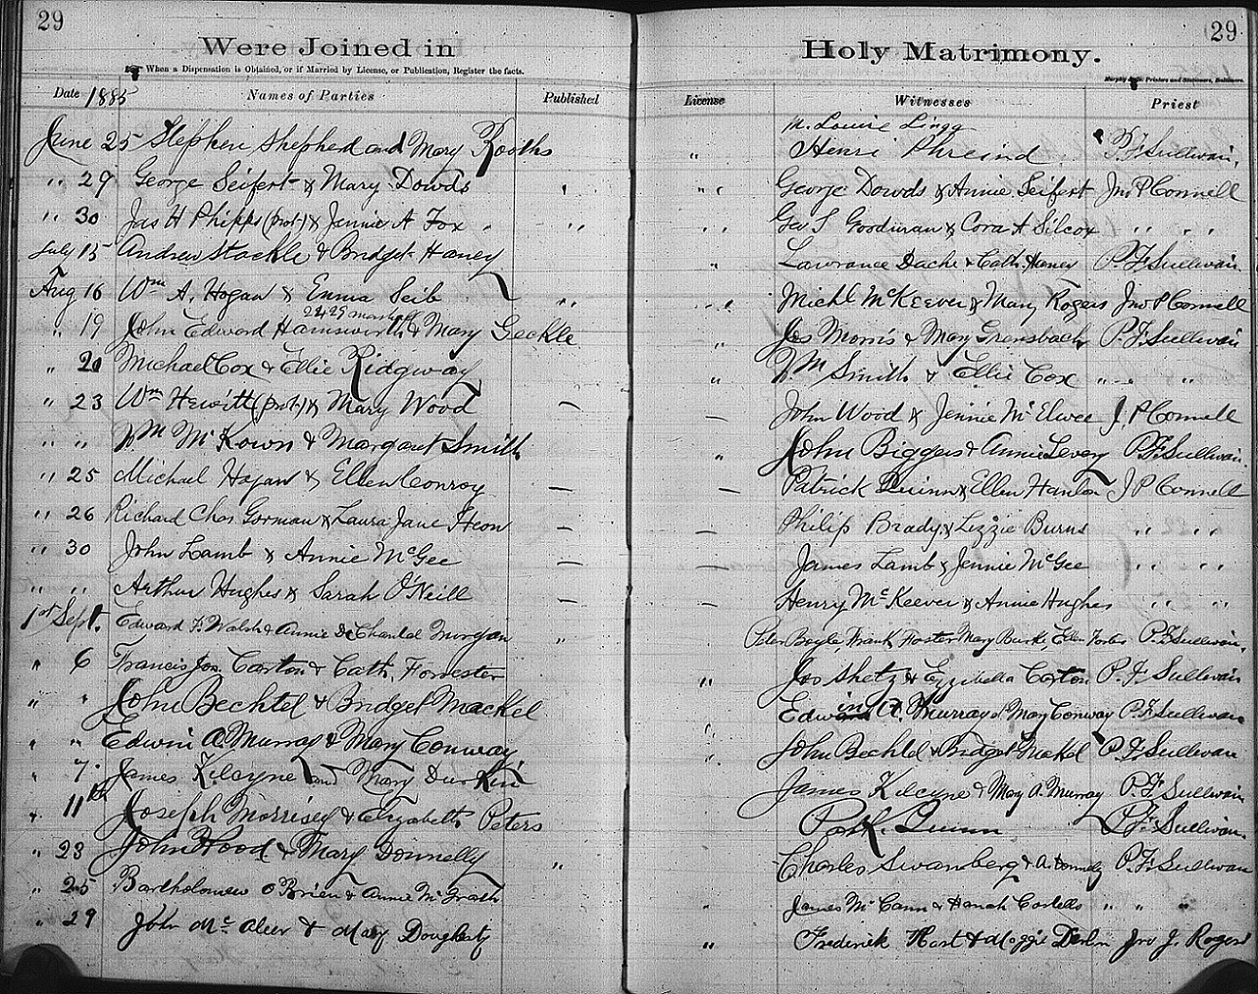 29 29
Were Joined in Holy Matrimony.
When a Dispensation is Obtained, or if Married by License, or Publication, Register the facts. Murphy Printers and Stationers, Baltimore.
Date 1885 Names of Parties Published License Witnesses Priest
M. Louise Lingg
June 25 Stephen Shepherd and Mary Rooths " Henri Phreind P.F. Sullivan.
" 29 George Seifert & Mary Dowds " " George Dowds & Annie Seifert Jno P Connell
" 30 Jas H Phipps (prot.) & Jennie A Fox " " Geo S Goodman & Cora A Silcox " "
July 15 Andrew Stackle & Bridget Haney " Lawrance Dache & Cath. Haney P.F. Sullivan
Aug 16 Wm A. Hogan & Emma Seib " " Michl McKeever & Mary Rogers Jno P Connell
" 19 John Edward Hamsworth & Mary Geckle " Jos Morris & Mary Gransbach P.F. Sullivan
" 20 Michael Cox & Ellie Ridgway " Wm Smith & Ellie Cox " "
" 23 Wm Hewitt (prot.) & Mary Wood — — John Wood & Jennie McElwee J. P Connell
" " Wm McKown & Margaret Smith " John Biggers & Annie Levery P.F. Sullivan
" 25 Michael Hogan & Ellen Conroy — — Patrick Quinn & Ellen Hanlon J P Connell
" 26 Richard Chas Gorman & Laura Jane Heon — — Philip Brady & Lizzie Burns " "
" 30 John Lamb & Annie McGee — — James Lamb & Jennie McGee " "
" " Arthur Hughes & Sarah O'Neill — — Henry McKeever & Annie Hughes " "
1st Sept. Edward F. Walsh & Annie De Chantal Morgan " Peter Boyle, Frank Foster Mary Burke, Ellen Foster P.F. Sullivan.
" 6 Francis Jos. Carton & Cath. Forrester " Jos Shetz & Ezzibella Carton P.F. Sullivan
" " John Bechtel & Bridget Mackel " Edwin A. Murray & Mary Conway P.F. Sullivan
" " Edwin A. Murray & Mary Conway " John Bechtel & Bridget Mackel P.F. Sullivan
" 7 James Kilcyne and Mary Durkin James Kilcyne & May A. Murray P.F. Sullivan
" 11th Joseph Morrisey & Elizabeth Peters Patk. Quinn P.F. Sullivan
" 23 John Hood & Mary Donnelly " Charles Swanberg & A. Donnelly P.F. Sullivan
" 25 Bartholomew O'Brien & Annie McGrath " James McCann & Hanah Costello " " "
" 29 John McAleer & Mary Dougherty " Frederick Hart & Maggie Devlin Jno J. Rogers